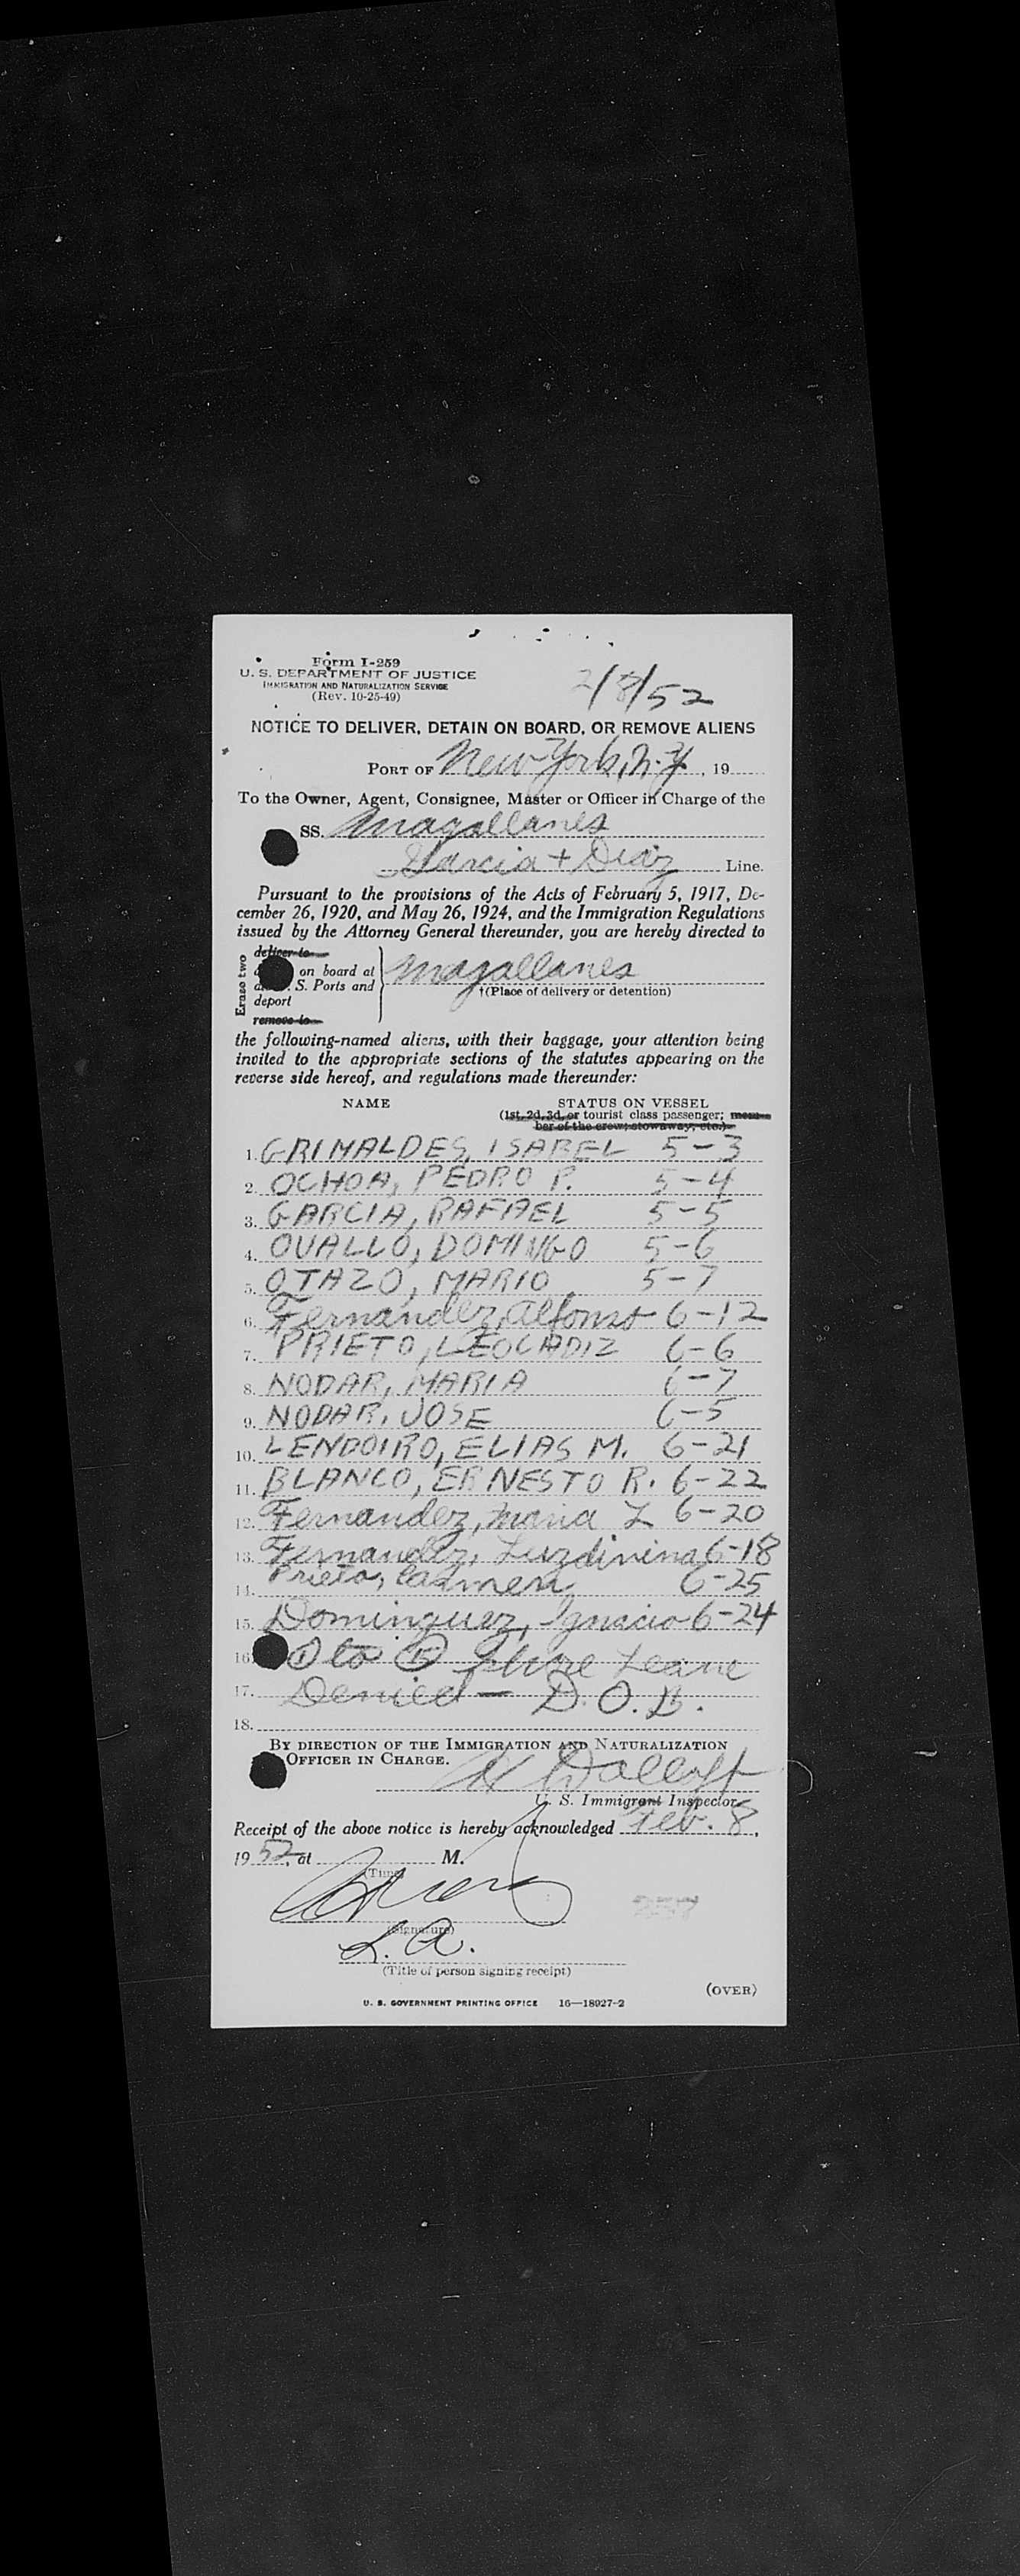 Form I-259
U. S. DEPARTMENT OF JUSTICE
IMMIGRATION AND NATURALIZATION SERVICE
(Rev. 10-25-49)
2/8/52
NOTICE TO DELIVER, DETAIN ON BOARD, OR REMOVE ALIENS
PORT OF New York, N.Y., 19
To the Owner, Agent, Consignee, Master or Officer in Charge of the
SS. Magallanes
Garcia + Diaz Line.
Pursuant to the provisions of the Acts of February 5, 1917, De-
cember 26, 1920, and May 26, 1924, and the Immigration Regulations
issued by the Attorney General thereunder, you are hereby directed to
Erase two
deliver to
on board at
S. Ports and
deport
remove to
Magallanes
†(Place of delivery or detention)
the following-named aliens, with their baggage, your attention being
invited to the appropriate sections of the statutes appearing on the
reverse side hereof, and regulations made thereunder:
NAME STATUS ON VESSEL
(1st, 2d, 3d, or tourist class passenger; mem-
ber of the crew; stowaway, etc.)
1. GRIMALDES, ISABEL 5-3
2. OCHOA, PEDRO P. 5-4
3. GARCIA, RAFAEL 5-5
4. OUALLO, DOMINGO 5-6
5. OTAZO, MARIO 5-7
6. Fernandez, Alfonso 6-12
7. PRIETO, LEOCADIZ 6-6
8. NODAR, MARIA 6-7
9. NODAR, JOSE 6-5
10. LENDOIRO, ELIAS M. 6-21
11. BLANCO, ERNESTO R. 6-22
12. Fernandez, Maria L 6-20
13. Fernandez, Luzdivina 6-18
14. Prieto, Carmen 6-25
15. Dominguez, Ignacio 6-24
16. ① to ⑮ Shore Leave
17. Denied — D.O.B.
18.
BY DIRECTION OF THE IMMIGRATION AND NATURALIZATION
OFFICER IN CHARGE.
U. S. Immigrant Inspector.
Receipt of the above notice is hereby acknowledged Feb. 8,
1952, at M.
(Time)
(Signature)
L. A.
(Title of person signing receipt)
(OVER)
U. S. GOVERNMENT PRINTING OFFICE 16—18027-2